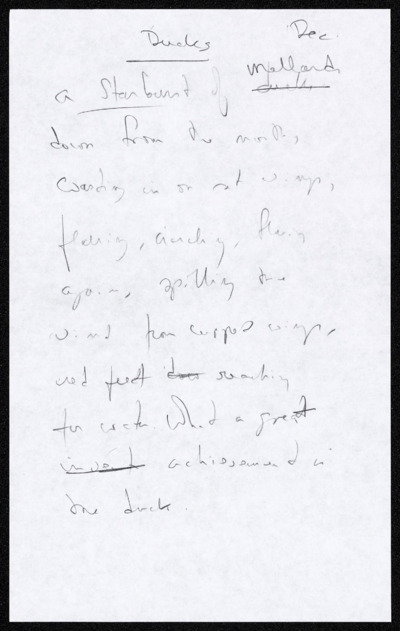 Ducks Dec.
a Starburst of Mallards
ducks
down from the north,
coasting in on set wings,
flaring, circling, flaring
again, spilling the
wind from cupped wings,
red feet reaching
for water. What a great
invent achievement is
the duck.